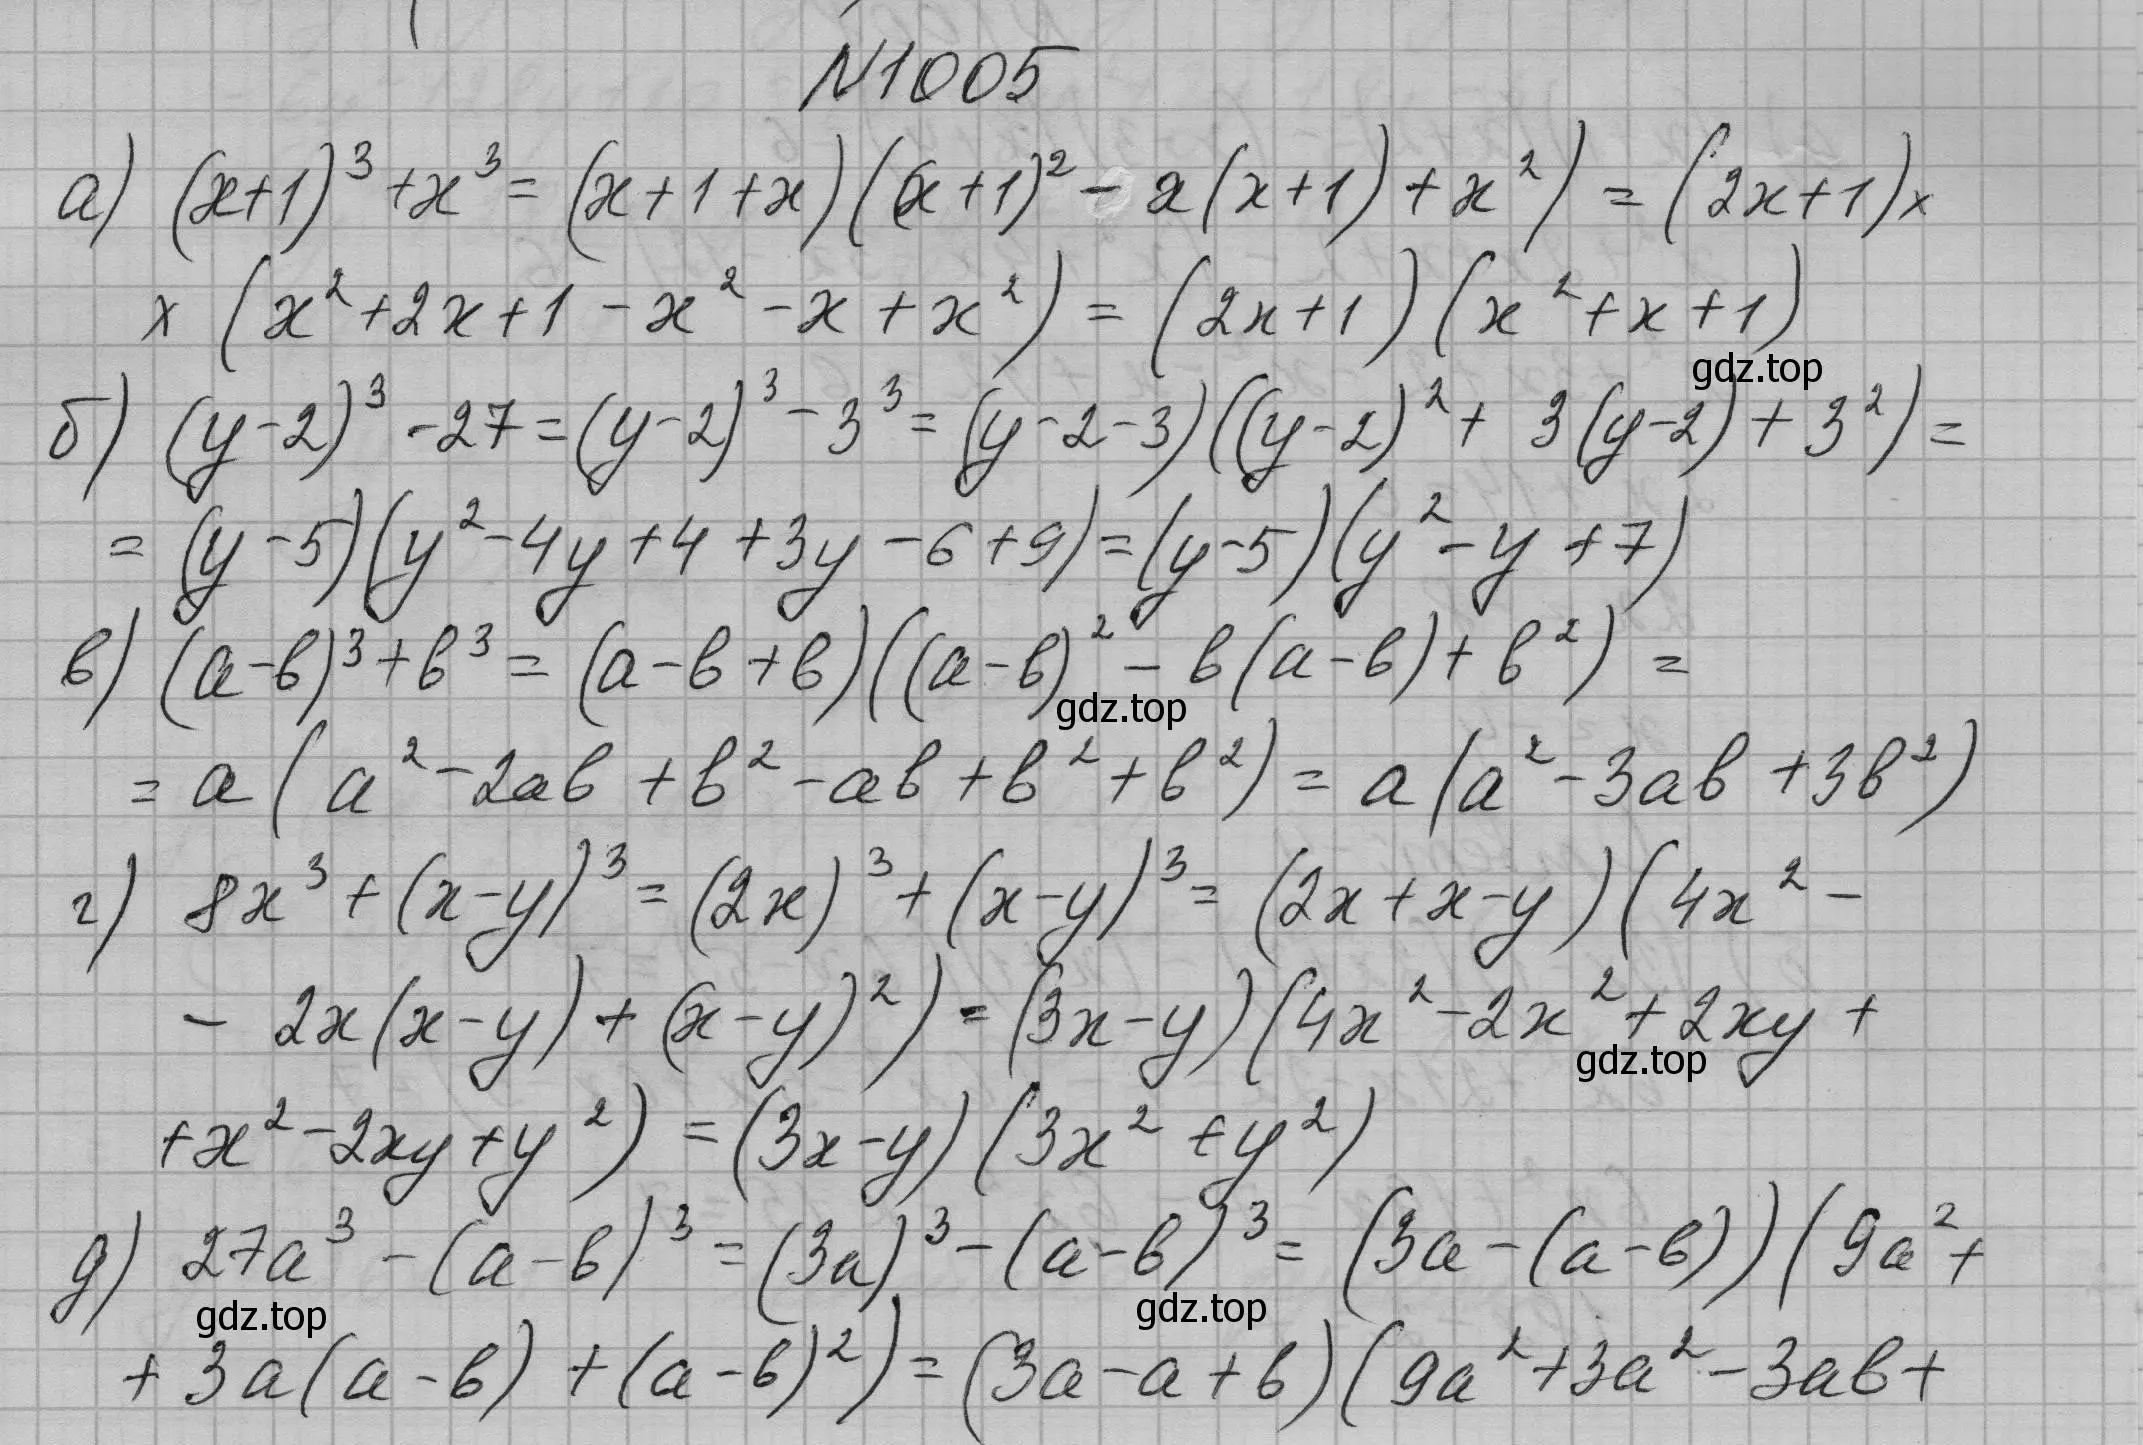 N1005
а) (x+1)³+x³=(x+1+x)((x+1)²-x(x+1)+x²)=(2x+1)×
×(x²+2x+1-x²-x+x²)=(2x+1)(x²+x+1)
gdz.top
б) (y-2)³-27=(y-2)³-3³=(y-2-3)((y-2)²+3(y-2)+3²)=
=(y-5)(y²-4y+4+3y-6+9)=(y-5)(y²-y+7)
в) (a-b)³+b³=(a-b+b)((a-b)²-b(a-b)+b²)=
gdz.top
=a(a²-2ab+b²-ab+b²+b²)=a(a²-3ab+3b²)
г) 8x³+(x-y)³=(2x)³+(x-y)³=(2x+x-y)(4x²-
-2x(x-y)+(x-y)²)=(3x-y)(4x²-2x²+2xy+
gdz.top
+x²-2xy+y²)=(3x-y)(3x²+y²)
д) 27a³-(a-b)³=(3a)³-(a-b)³=(3a-(a-b))(9a²+
gdz.top gdz.top
+3a(a-b)+(a-b)²)=(3a-a+b)(9a²+3a²-3ab+